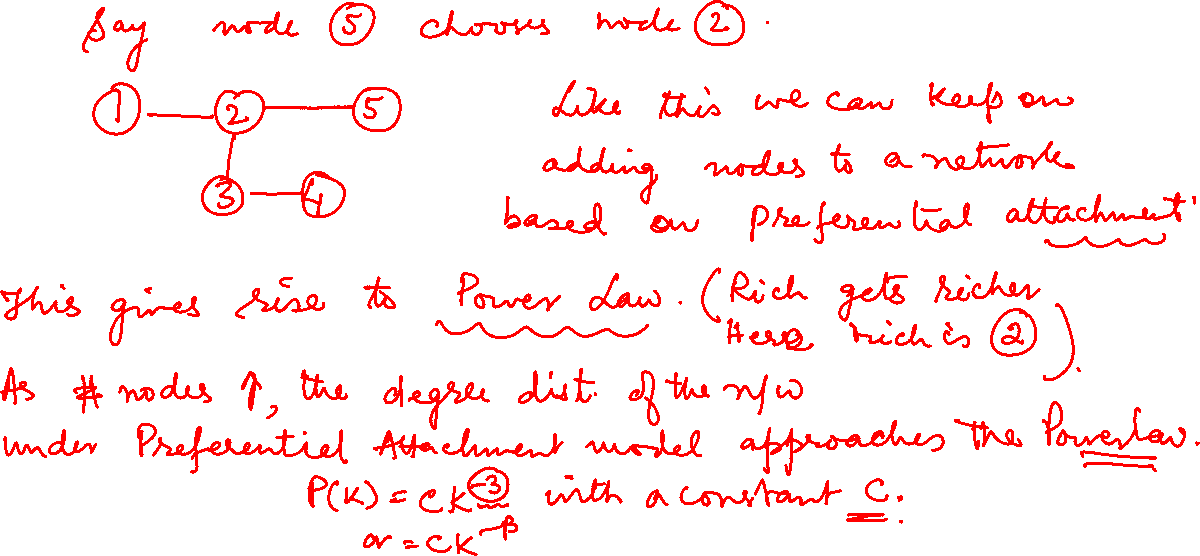 Say node ⑤ chooses node ②.
① ② ⑤
③ ④
Like this we can keep on
adding nodes to a network
based on preferential attachment.
This gives rise to Power Law. (Rich gets richer
Here rich is ②).
As # nodes ↑, the degree dist. of the n/w
under Preferential Attachment model approaches the Power law.
P(K) = CK^-3 with a constant C.
or = CK^-β